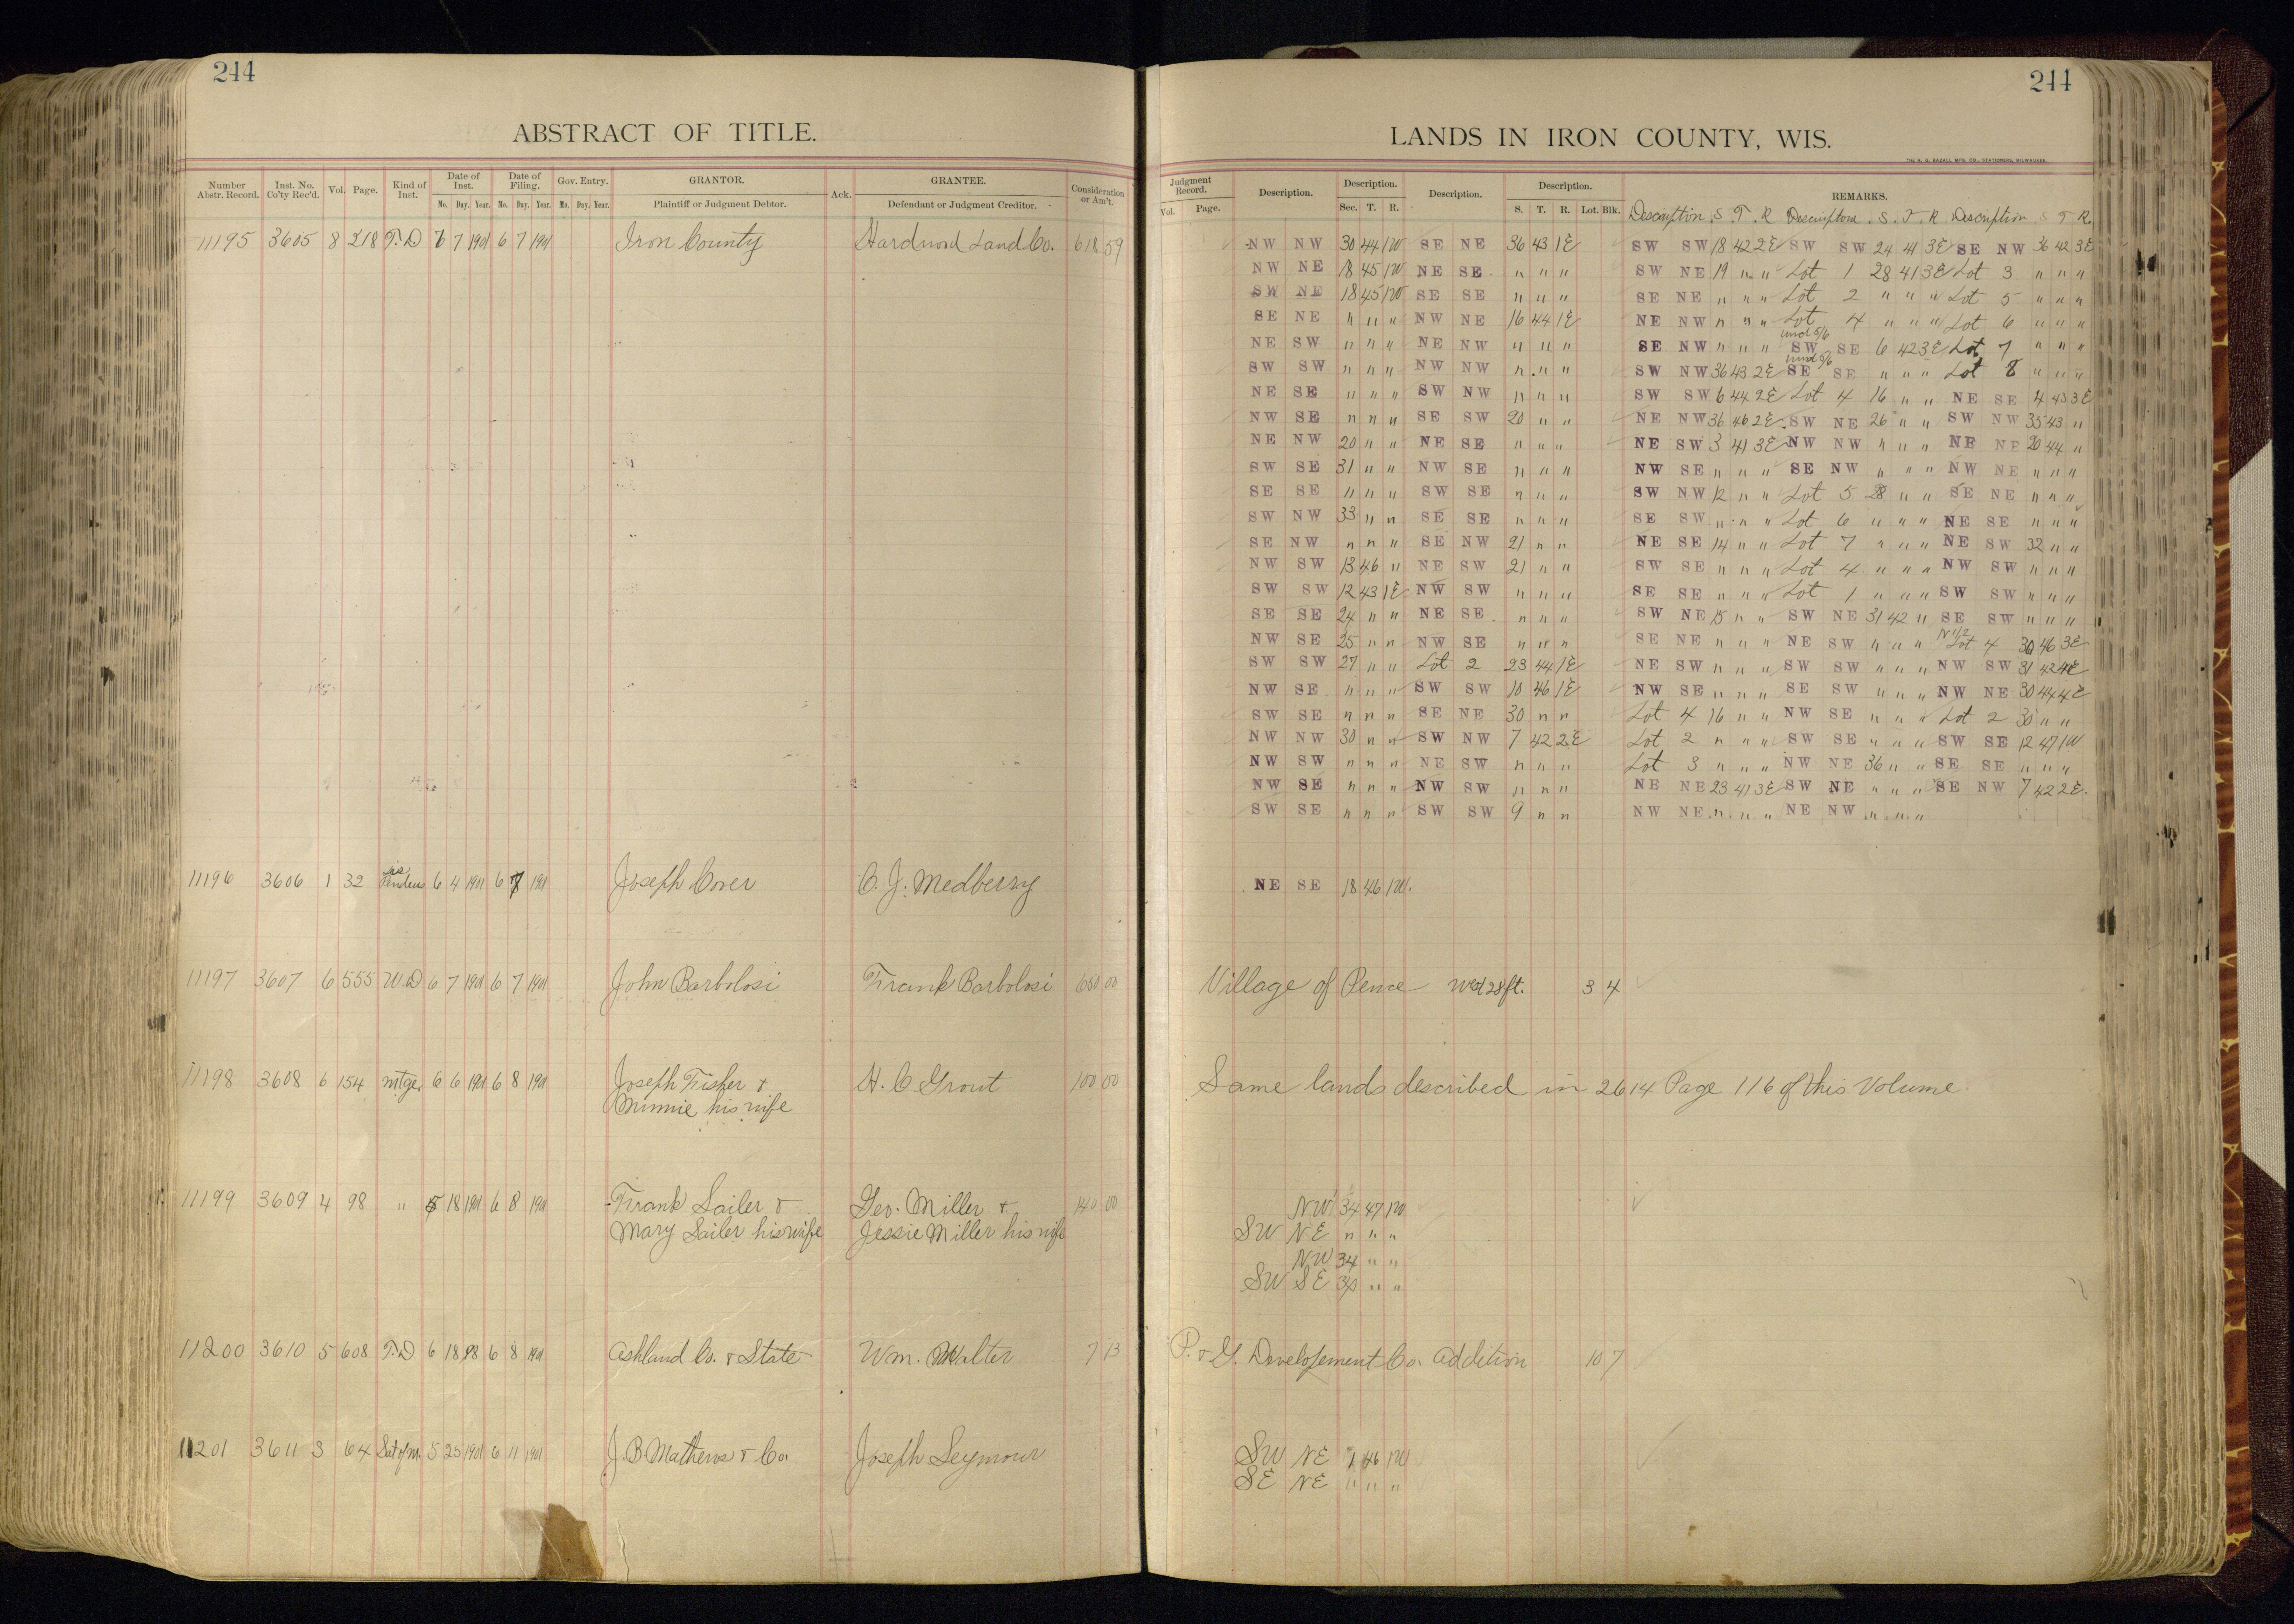 244
ABSTRACT OF TITLE.
Number Abstr. Record. Inst. No. Co'ty Rec'd. Vol. Page. Kind of Inst. Date of Inst. Mo. Day. Year. Date of Filing. Mo. Day. Year. Gov. Entry. Mo. Day. Year. GRANTOR. Plaintiff or Judgment Debtor. Ack. GRANTEE. Defendant or Judgment Creditor. Consideration or Am't.
11195 3605 8 218 T.D 6 7 1901 6 7 1901 Iron County Hardwood Land Co. 618 59
11196 3606 1 32 Lis Pendens 6 4 1901 6 7 1901 Joseph Cover C. J. Medberry
11197 3607 6 555 W.D 6 7 1901 6 7 1901 John Barbolosi Frank Barbolosi 650 00
11198 3608 6 154 Mtge. 6 6 1901 6 8 1901 Joseph Fisher & H. C Grout 100 00
Minnie his wife
11199 3609 4 98 " 5 18 1901 6 8 1901 Frank Sailer & Geo. Miller & 140 00
Mary Sailer his wife Jessie Miller his wife
11200 3610 5 608 T.D 6 18 98 6 8 1901 Ashland Co. & State Wm. Walter 7 13
11201 3611 3 64 Sat of M. 5 25 1901 6 11 1901 J. B Mathews & Co. Joseph Seymour
244
LANDS IN IRON COUNTY, WIS.
THE H. G. RAZALL MFG. CO., STATIONERS, MILWAUKEE.
Judgment Record. Vol. Page. Description. Description. Sec. T. R. Description. Description. S. T. R. Lot. Blk. REMARKS.
Description S. T. R Description S. T. R Description S T R.
NW NW 30 44 1W SE NE 36 43 1E SW SW 18 42 2E SW SW 24 41 3E SE NW 36 42 3E
NW NE 18 45 1W NE SE " " " SW NE 19 " " Lot 1 28 41 3E Lot 3 " " "
SW NE 18 45 1W SE SE " " " SE NE " " " Lot 2 " " " Lot 5 " " "
SE NE " " " NW NE 16 44 1E NE NW " " " Lot 4 " " " Lot 6 " " "
NE SW " " " NE NW " " " SE NW " " " und 5/6 SW SE 6 42 3E Lot 7 " " "
SW SW " " " NW NW " " " SW NW 36 43 2E und 5/6 SE SE " " " Lot 8 " " "
NE SE " " " SW NW " " " SW SW 6 44 2E Lot 4 16 " " NE SE 4 43 3E
NW SE " " " SE SW 20 " " NE NW 36 46 2E SW NE 26 " " SW NW 35 43 "
NE NW 20 " " NE SE " " " NE SW 3 41 3E NW NW " " " NE NE 20 44 "
SW SE 31 " " NW SE " " " NW SE " " " SE NW " " " NW NE " " "
SE SE " " " SW SE " " " SW NW 12 " " Lot 5 28 " " SE NE " " "
SW NW 33 " " SE SE " " " SE SW " " " Lot 6 " " " NE SE " " "
SE NW " " " SE NW 21 " " NE SE 14 " " Lot 7 " " " NE SW 32 " "
NW SW 13 46 " NE SW 21 " " SW SE " " " Lot 4 " " " NW SW " " "
SW SW 12 43 1E NW SW " " " SE SE " " " Lot 1 " " " SW SW " " "
SE SE 24 " " NE SE " " " SW NE 15 " " SW NE 31 42 " SE SW " " "
NW SE 25 " " NW SE " " " SE NE " " " NE SW " " " N 1/2 Lot 4 30 46 3E
SW SW 27 " " Lot 2 23 44 1E NE SW " " " SW SW " " " NW SW 31 42 4E
NW SE " " " SW SW 10 46 1E NW SE " " " SE SW " " " NW NE 30 44 4E
SW SE " " " SE NE 30 " " Lot 4 16 " " NW SE " " " Lot 2 30 " "
NW NW 30 " " SW NW 7 42 2E Lot 2 " " " SW SE " " " SW SE 12 47 1W
NW SW " " " NE SW " " " Lot 3 " " " NW NE 36 " " SE SE " " "
NW SE " " " NW SW " " " NE NE 23 41 3E SW NE " " " SE NW 7 42 2E.
SW SE " " " SW SW 9 " " NW NE " " " NE NW " " "
NE SE 18 46 1W.
Village of Pence West 28 ft. 3 4
Same lands described in 2614 Page 116 of this Volume
NW 34 47 1W
SW NE " " "
NW 34 " "
SW SE " "
P. & G. Development Co. Addition 10 7
SW NE 1 46 1W
SE NE " " "